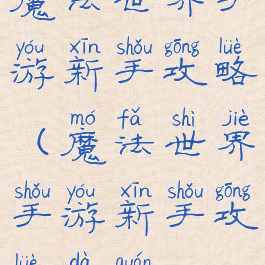 魔法世界手
yóu xīn shǒu gōng lüè
游新手攻略
mó fǎ shì jiè
（魔法世界
shǒu yóu xīn shǒu gōng
手游新手攻
lüè dà quán